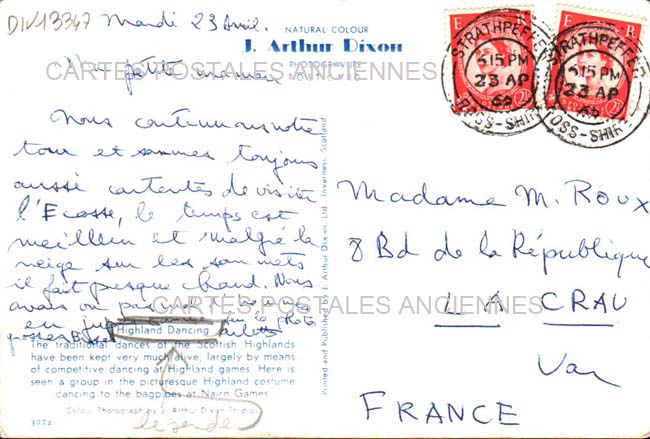 DIV13347
Mardi 23 Avril.
NATURAL COLOUR
J. Arthur Dixon
PHOTOGRAVURE
CARTES POSTALES ANCIENNES
Ma petite maman
Nous continuons notre
tour et sommes toujours
aussi contentes de visiter
l'Ecosse, le temps est
meilleur et malgré la
neige sur les sommets
il fait presque chaud. Nous
avons
en
sur la photo.
CARTES POSTALES ANCIENNES
Highland Dancing
The traditional dances of the Scottish Highlands
have been kept very much alive, largely by means
of competitive dancing at Highland games. Here is
seen a group in the picturesque Highland costume
dancing to the bagpipes at Nairn Games.
Colour Photograph by J. Arthur Dixon Studios
3774
légende
Printed and Published by J. Arthur Dixon Ltd., Inverness, Scotland
E R
STRATHPEFFER
6.15 PM
23 AP
ROSS-SHIRE
E R
STRATHPEFFER
6.15 PM
23 AP
ROSS-SHIRE
Madame M. Roux
8 Bd de la République
LA CRAU
Var
FRANCE